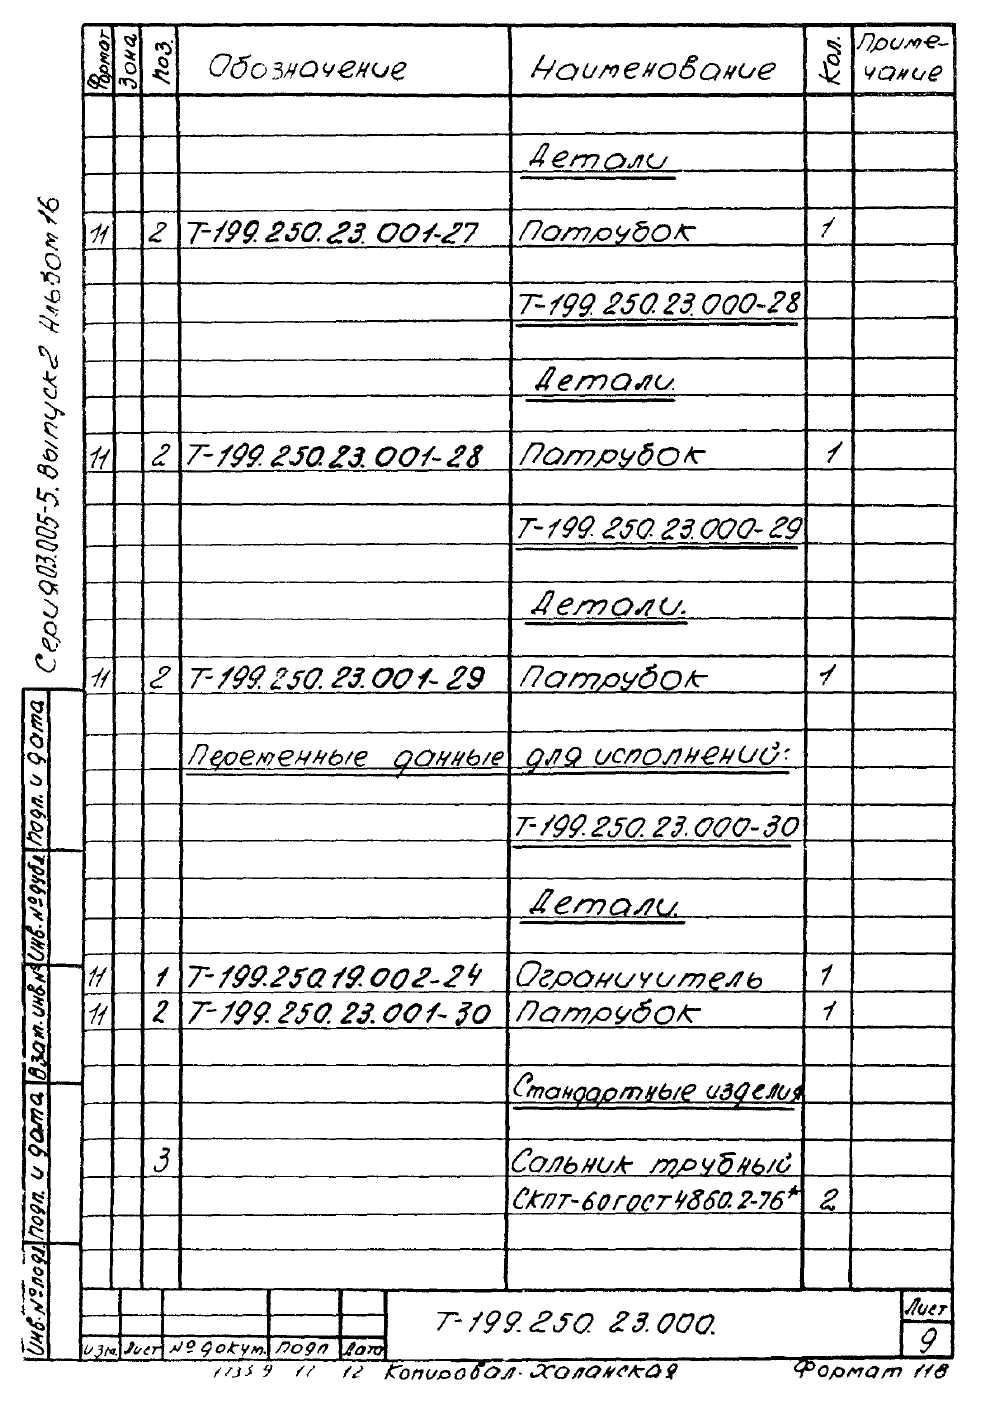 Формат Зона Поз. Обозначение Наименование Кол. Приме-
чание
Детали
11 2 Т-199.250.23.001-27 Патрубок 1
Т-199.250.23.000-28
Детали.
11 2 Т-199.250.23.001-28 Патрубок 1
Т-199.250.23.000-29
Детали.
11 2 Т-199.250.23.001-29 Патрубок 1
Переменные данные для исполнений:
Т-199.250.23.000-30
Детали.
11 1 Т-199.250.19.002-24 Ограничитель 1
11 2 Т-199.250.23.001-30 Патрубок 1
Стандартные изделия
3 Сальник трубный
СКПТ-60 ГОСТ 4860.2-76* 2
Серия 03.005-5. Выпуск 2 Альбом 16
Подп. и дата
Инв. № дубл.
Взам. инв. №
Подп. и дата
Инв. № подл.
Изм. Лист № докум. Подп Дата
Т-199.250.23.000.
Лист
9
11 12 Копировал- Халанская Формат 11В